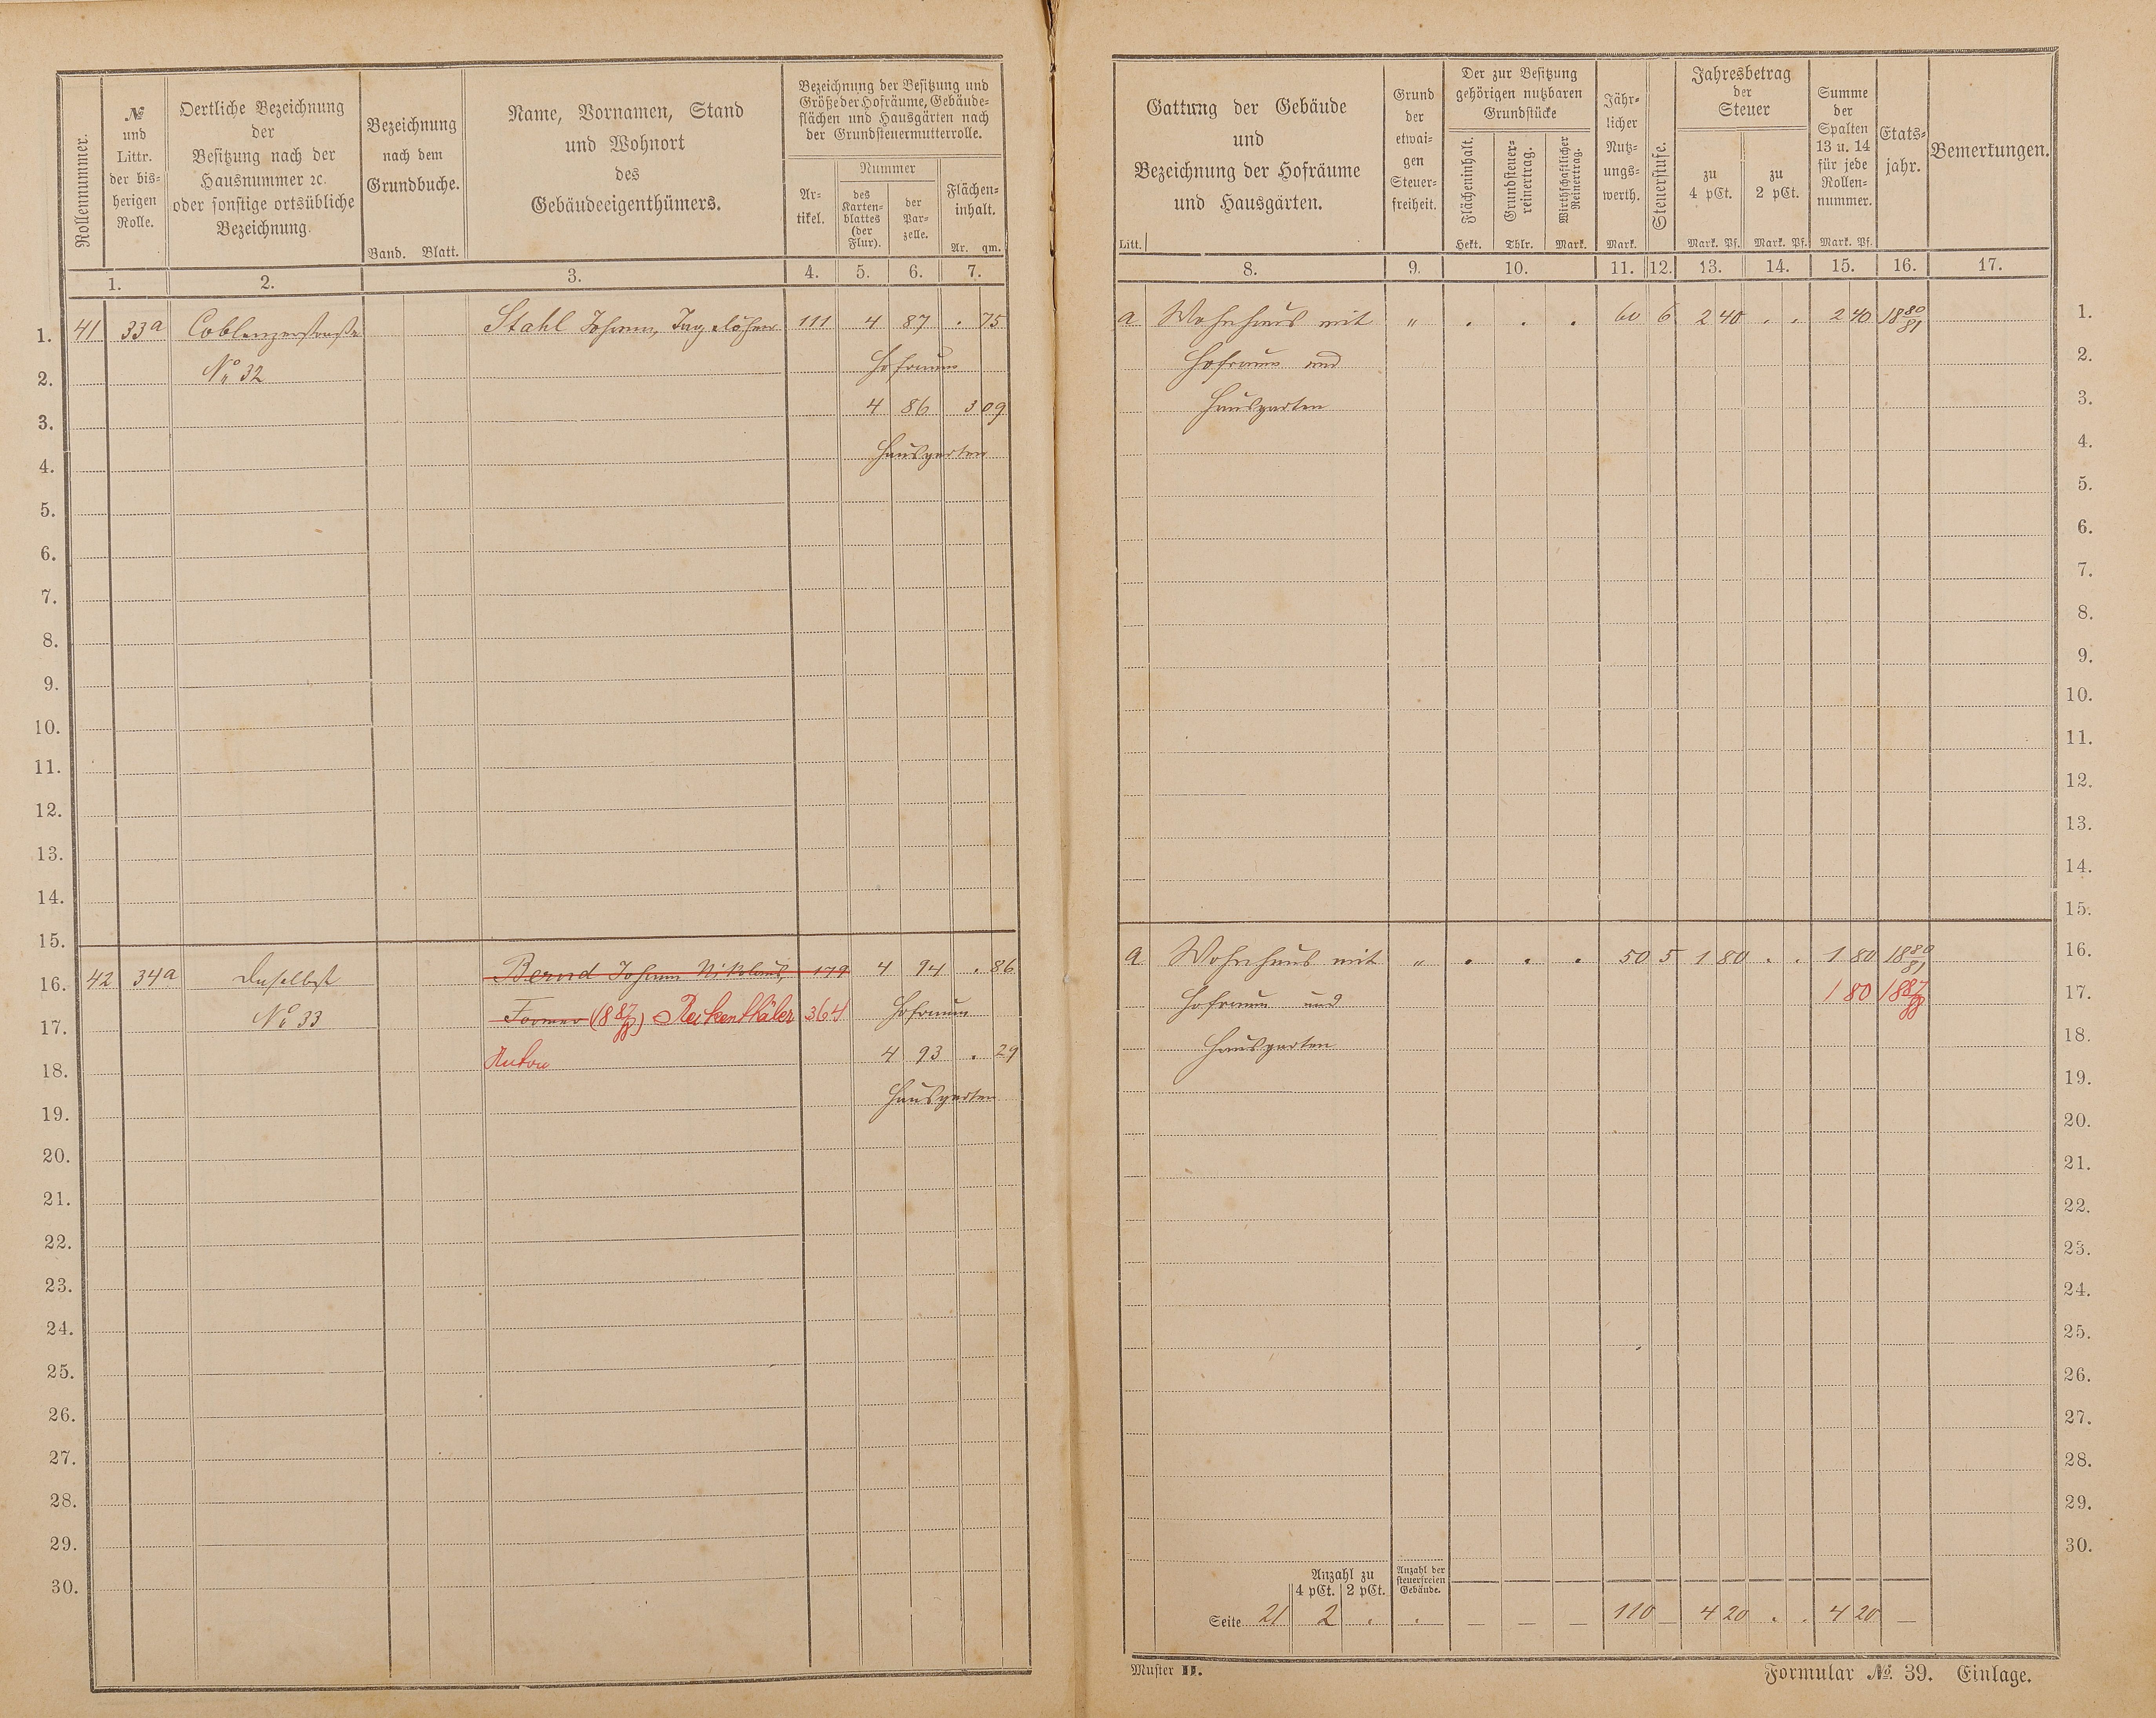 Rollennummer.
№ und Littr. der bisherigen Rolle.
Oertliche Bezeichnung
der
Besitzung nach der
Hausnummer ꝛc.
oder sonstige ortsübliche
Bezeichnung.
Bezeichnung
nach dem
Grundbuche.
Band. Blatt.
Name, Vornamen, Stand
und Wohnort
des
Gebäudeeigenthümers.
Bezeichnung der Besitzung und
Größe der Hofräume, Gebäude-
flächen und Hausgärten nach
der Grundsteuermutterrolle.
Ar-
tikel.
Nummer
des
Karten-
blattes
(der
Flur).
der
Par-
zelle.
Flächen-
inhalt.
Ar. qm.
1. 2. 3. 4. 5. 6. 7.
1. 41 33a Coblenzerstraße Stahl Johann, Tagelöhner 111 4 87 . 75
2. No 32 Hofraum
3. 4 86 3 09
4. Hausgarten
5.
6.
7.
8.
9.
10.
11.
12.
13.
14.
15.
16. 42 34a Daselbst Bernd Johann Nikolaus, 179 4 94 . 86
17. No 33 Former (1887/88) Reckenthäler 364 Hofraum
18. Anton 4 93 . 29
19. Hausgarten
20.
21.
22.
23.
24.
25.
26.
27.
28.
29.
30.
Gattung der Gebäude
und
Bezeichnung der Hofräume
und Hausgärten.
Litt.
Grund
der
etwai-
gen
Steuer-
freiheit.
Der zur Besitzung
gehörigen nutzbaren
Grundstücke
Flächeninhalt.
Hekt.
Grundsteuer-
reinertrag.
Thlr.
Wirthschaftlicher
Reinertrag.
Mark.
Jähr-
licher
Nutz-
ungs-
werth.
Mark.
Steuerstufe.
Jahresbetrag
der
Steuer
zu
4 pCt.
Mark. Pf.
zu
2 pCt.
Mark. Pf.
Summe
der
Spalten
13 u. 14
für jede
Rollen-
nummer.
Mark. Pf.
Etats-
jahr.
Bemerkungen.
8. 9. 10. 11. 12. 13. 14. 15. 16. 17.
a Wohnhaus mit " . . . 60 6 2 40 . . 2 40 1880/81 1.
Hofraum und 2.
Hausgarten 3.
4.
5.
6.
7.
8.
9.
10.
11.
12.
13.
14.
15.
a Wohnhaus mit " . . . 50 5 1 80 . . 1 80 1880/81 16.
Hofraum und 1 80 1887/88 17.
Hausgarten 18.
19.
20.
21.
22.
23.
24.
25.
26.
27.
28.
29.
30.
Anzahl zu
4 pCt. 2 pCt.
Anzahl der
steuerfreien
Gebäude.
Seite 21 2 . . — — — 110 — 4 20 . . 4 20 —
Muster II.
Formular №. 39. Einlage.